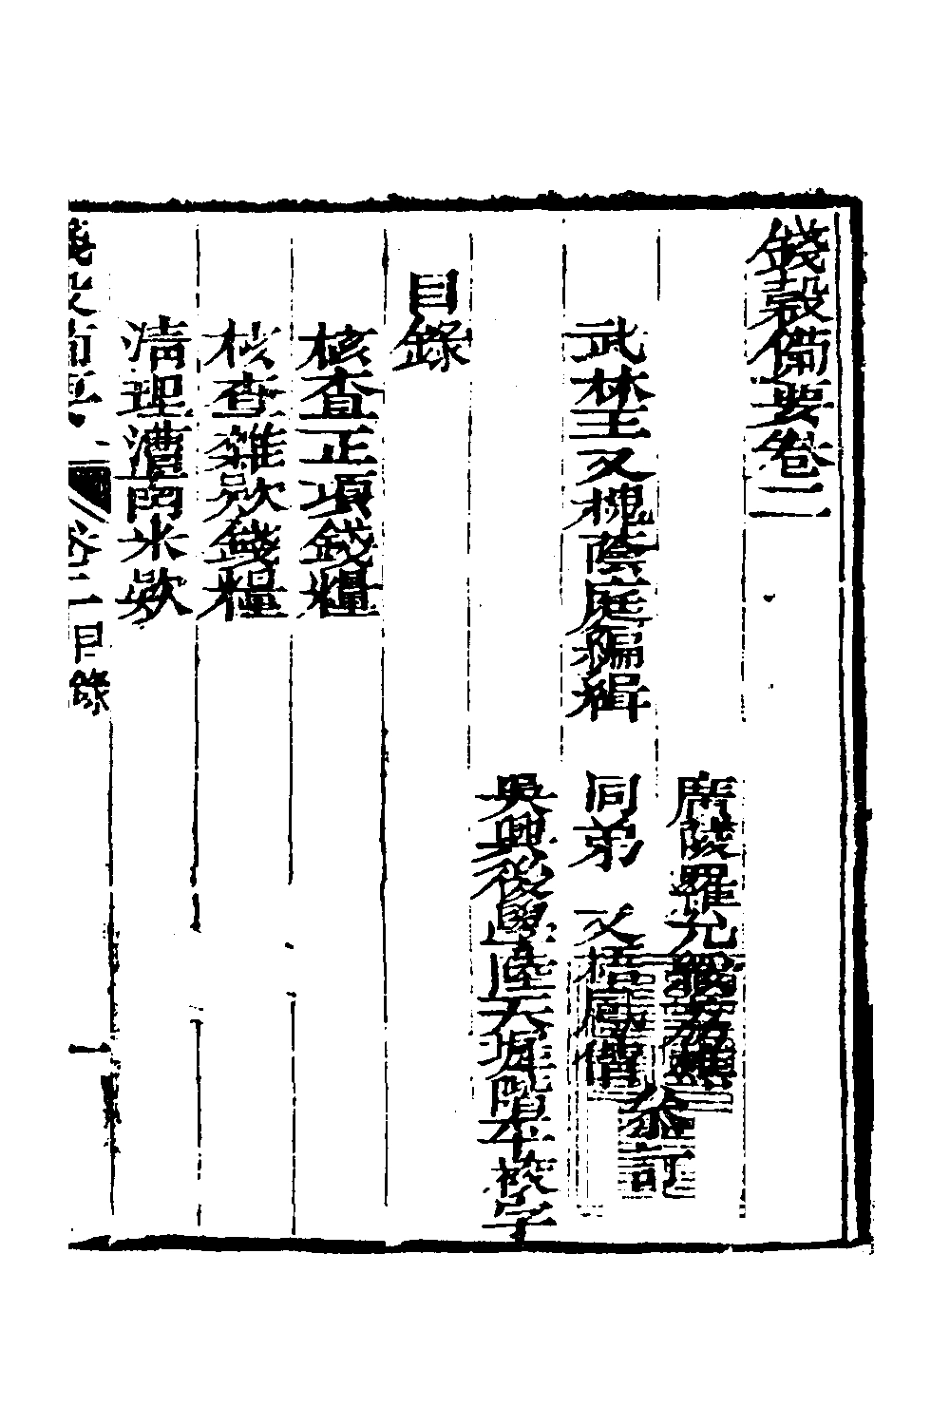 錢穀備要卷二
廣陵羅允
武林王又槐蔭庭編輯 同弟 又梧 叅訂
吳興後學陸天墀階平校字
目錄
核查正項錢糧
核查雜欵錢糧
清理漕南米欵
錢穀備要 卷二目錄 一